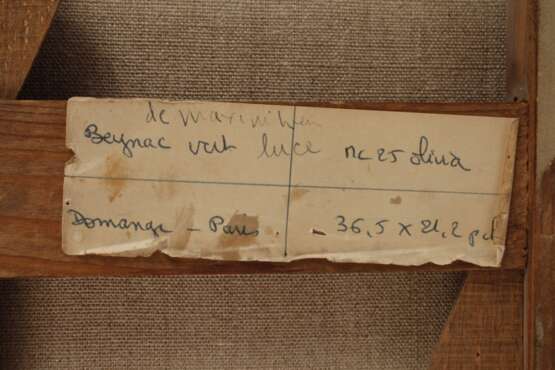 de maximilien
Beynac vert luce nc 25 olivia
Domange - Paris 36,5 x 21,2 pd